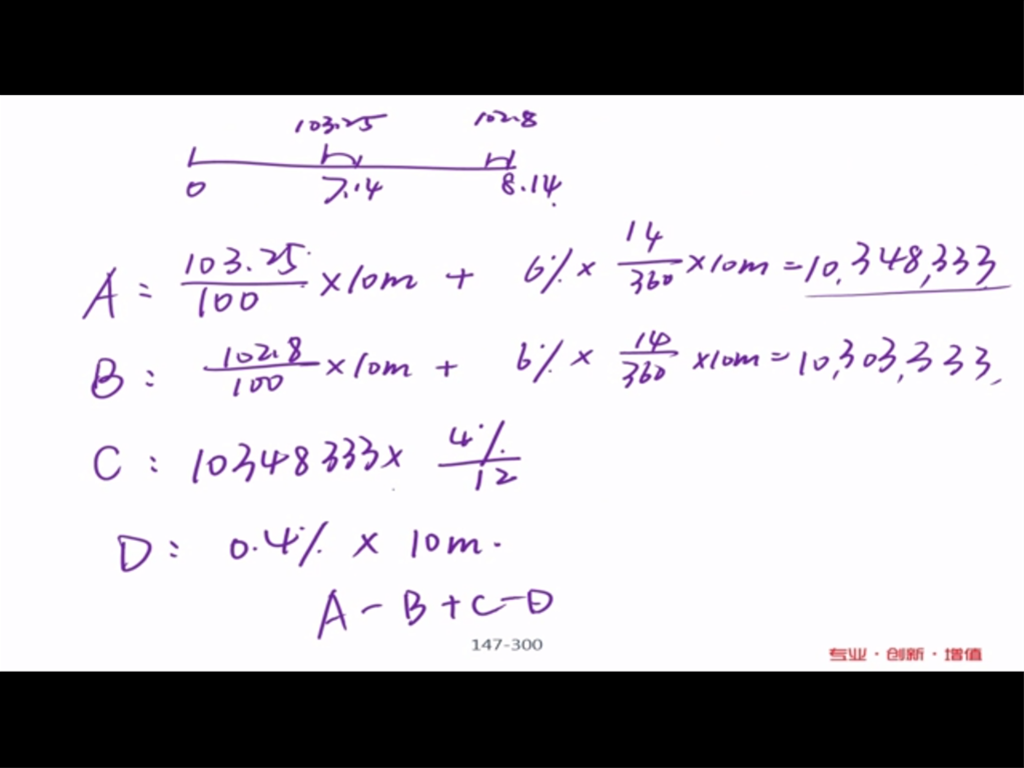 103.25 102.8
0 7.14 8.14
A = 103.25/100 × 10m + 6% × 14/360 × 10m = 10,348,333
B : 102.8/100 × 10m + 6% × 14/360 × 10m = 10,303,333
C : 10348333 × 4%/12
D : 0.4% × 10m.
A - B + C - D
147-300
专业·创新·增值